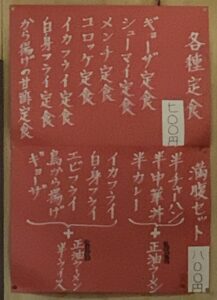 各種定食
七〇〇円
ギョーザ定食
シューマイ定食
メンチ定食
コロッケ定食
イカフライ定食
白身フライ定食
から揚げの甘酢定食
満腹セット
八〇〇円
半チャーハン
半中華丼
半カレー
＋
正油ラーメン
イカフライ
白身フライ
エビフライ
鳥から揚げ
ギョーザ
＋
正油ラーメン
半ライス